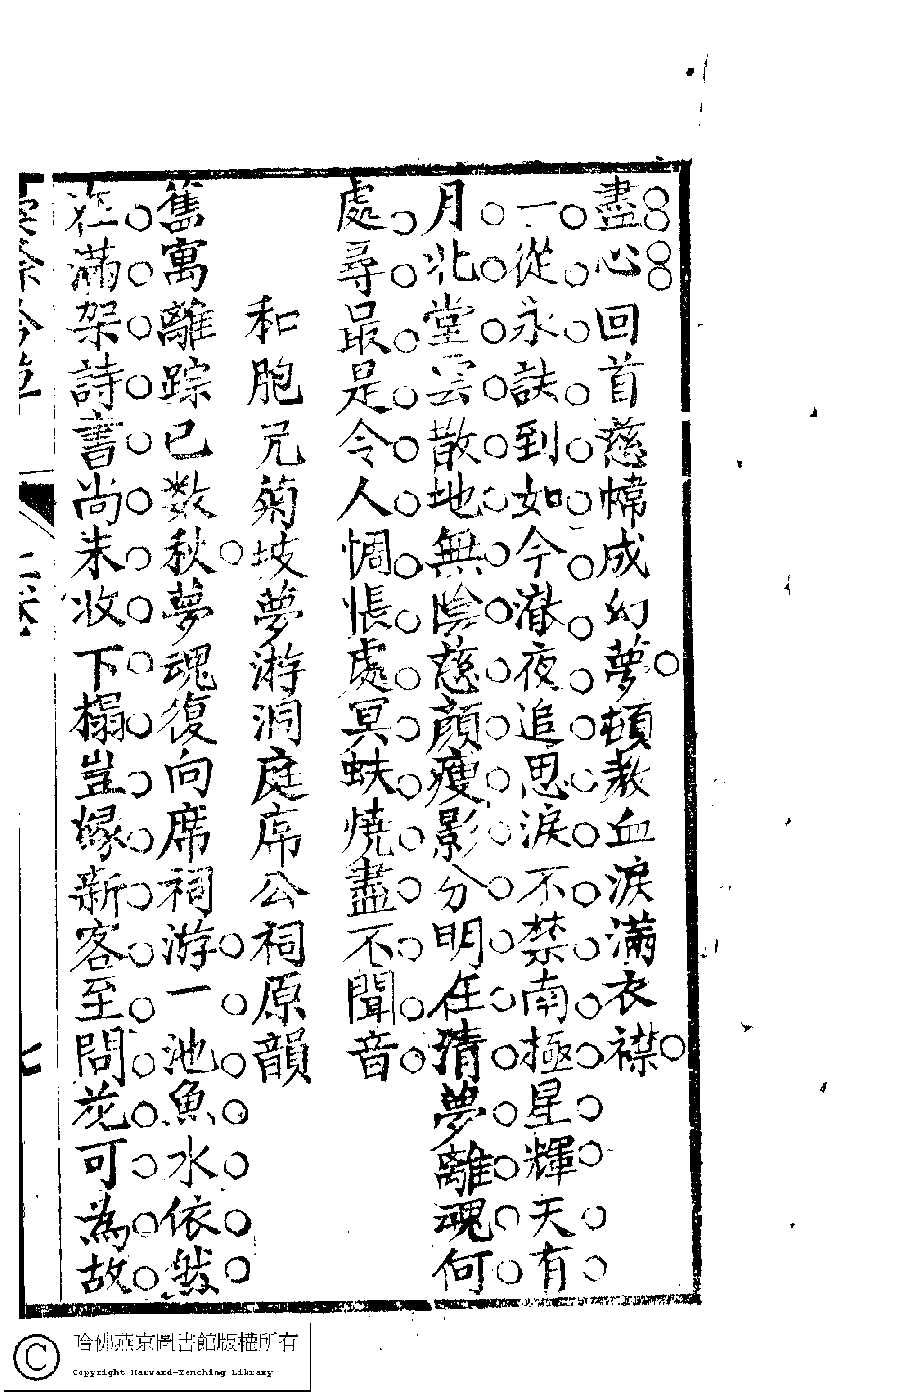 盡心回首慈幃成幻夢頓教血淚滿衣襟
一從永訣到如今潸夜追思淚不禁南極星輝天有
月北堂雲散地無陰慈顏瘦影分明在清夢離魂何
處尋最是令人惆悵處冥蚨燒盡不聞音
和胞兄菊坡夢游洞庭席公祠原韻
舊寓離踪已数秋夢魂復向席祠游一池魚水依然
在滿架詩書尚未收下榻豈緣新客至問花可為故
七
哈佛燕京圖書館版權所有
Copyright Harvard-Yenching Library